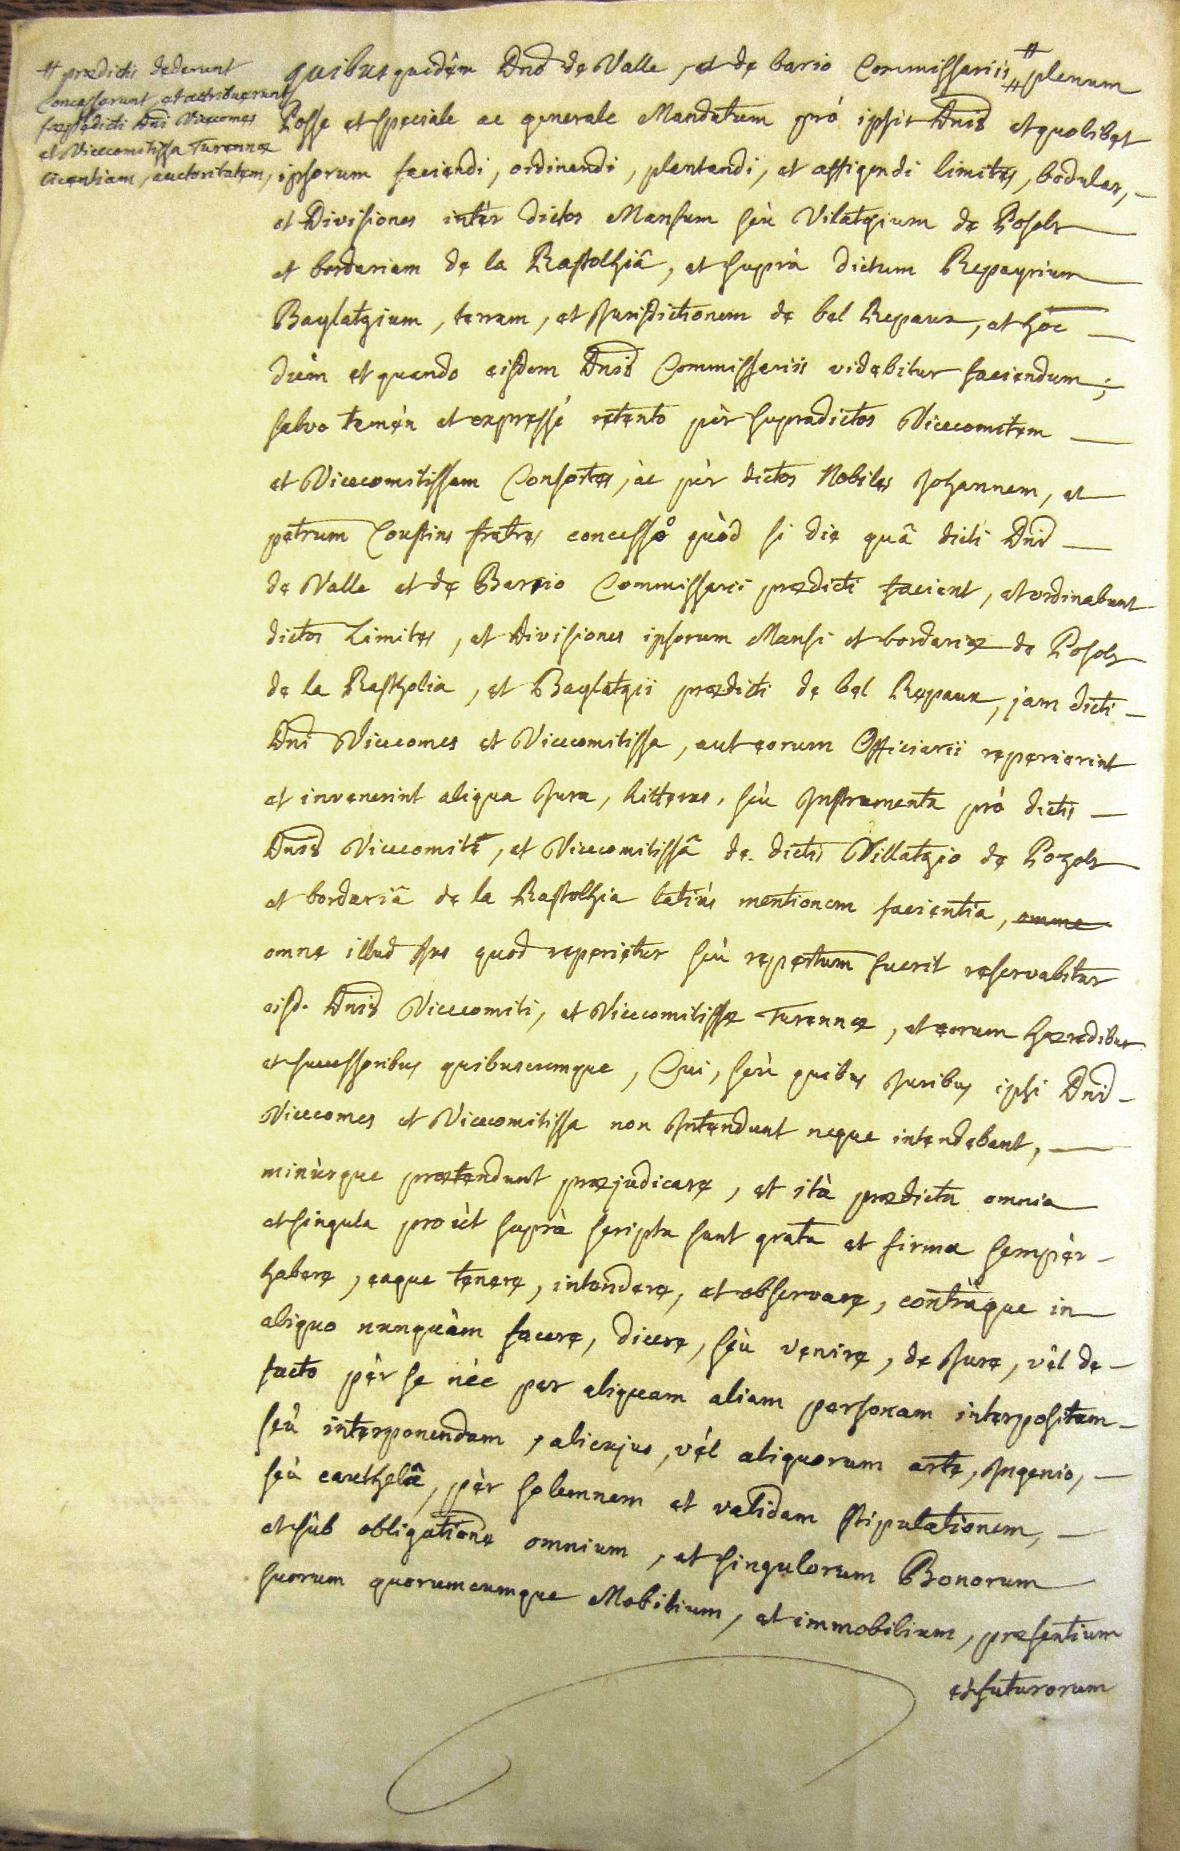 # prædictis dederunt
Concesserunt, et attribuerunt
præfati dicti Dni Vicecomes
et Vicecomitissa Turennæ
licentiam, auctoritatem,
quibus quidèm Dnis de Valle, et de bario Commissariis # # plenum
Posse et speciale ac generale Mandatum prò ipsis Dnis et quolibet
ipsorum faciendi, ordinandi, plantandi, et affigendi limites, bodulas,
et Divisiones intèr dictos Mansum seù Vilatgium de Posols
et bordariam de la Rastolhiâ, et suprà dictum Repayrium
Baylatgium, terram, et Jurisdictionem de bel Repaux, et hoc
dùm et quando eisdem Dnis Commissariis videbitur faciendum;
salvo tamèn et expressé retento pèr supradictos Vicecomitem
et Vicecomitissam Consortes, ac pèr dictos Nobiles Johannem, et
petrum Coustins fratres concesso quòd si die quâ dicti Dni
de Valle et de Barrio Commissarii prædicti facient, et ordinabunt
dictos Limites, et Divisiones ipsorum Mansi et bordariæ de Posols
de la Rastholia, et Baylatgii prædicti de bel Repaux, jam dicti
Dni Vicecomes et Vicecomitissa, aut eorum Officiarii reperierint
et invenerint aliqua Jura, Litteras, seù Instrumenta prò dictis
Dnis Vicecomite, et Vicecomitissâ de dictis Villatgio de Pozols
et bordariâ de la Rastolhia latiùs mentionem facientia, omne
omne illud Jus quod reperietur seù repertum fuerit reservabitur
eisd. Dnis Vicecomiti, et Vicecomitissæ Turennæ, et eorum hæredibus
et successoribus quibuscumque, Qui, seù quibus Juribus ipsi Dni
Vicecomes et Vicecomitissa non Intendunt neque intendebant,
minùsque prætendunt præjudicare, et ità prædicta omnia
et singula proùt suprà scripta sunt grata et firma sempèr
habere, eaque tenere, intendere, et observare, contràque in
aliquo nunquàm facere, dicere, seù venire, de Jure, vèl de
facto pèr se nèc per aliquam aliam personam interpositam
seù interponendam, alicujus, vèl aliquorum arte, Ingenio,
seù cauthelâ, pèr solemnem et validam stipulationem,
et sùb obligatione omnium, et singulorum Bonorum
suorum quorumcumque Mobilium, et immobilium, præsentium
et futurorum